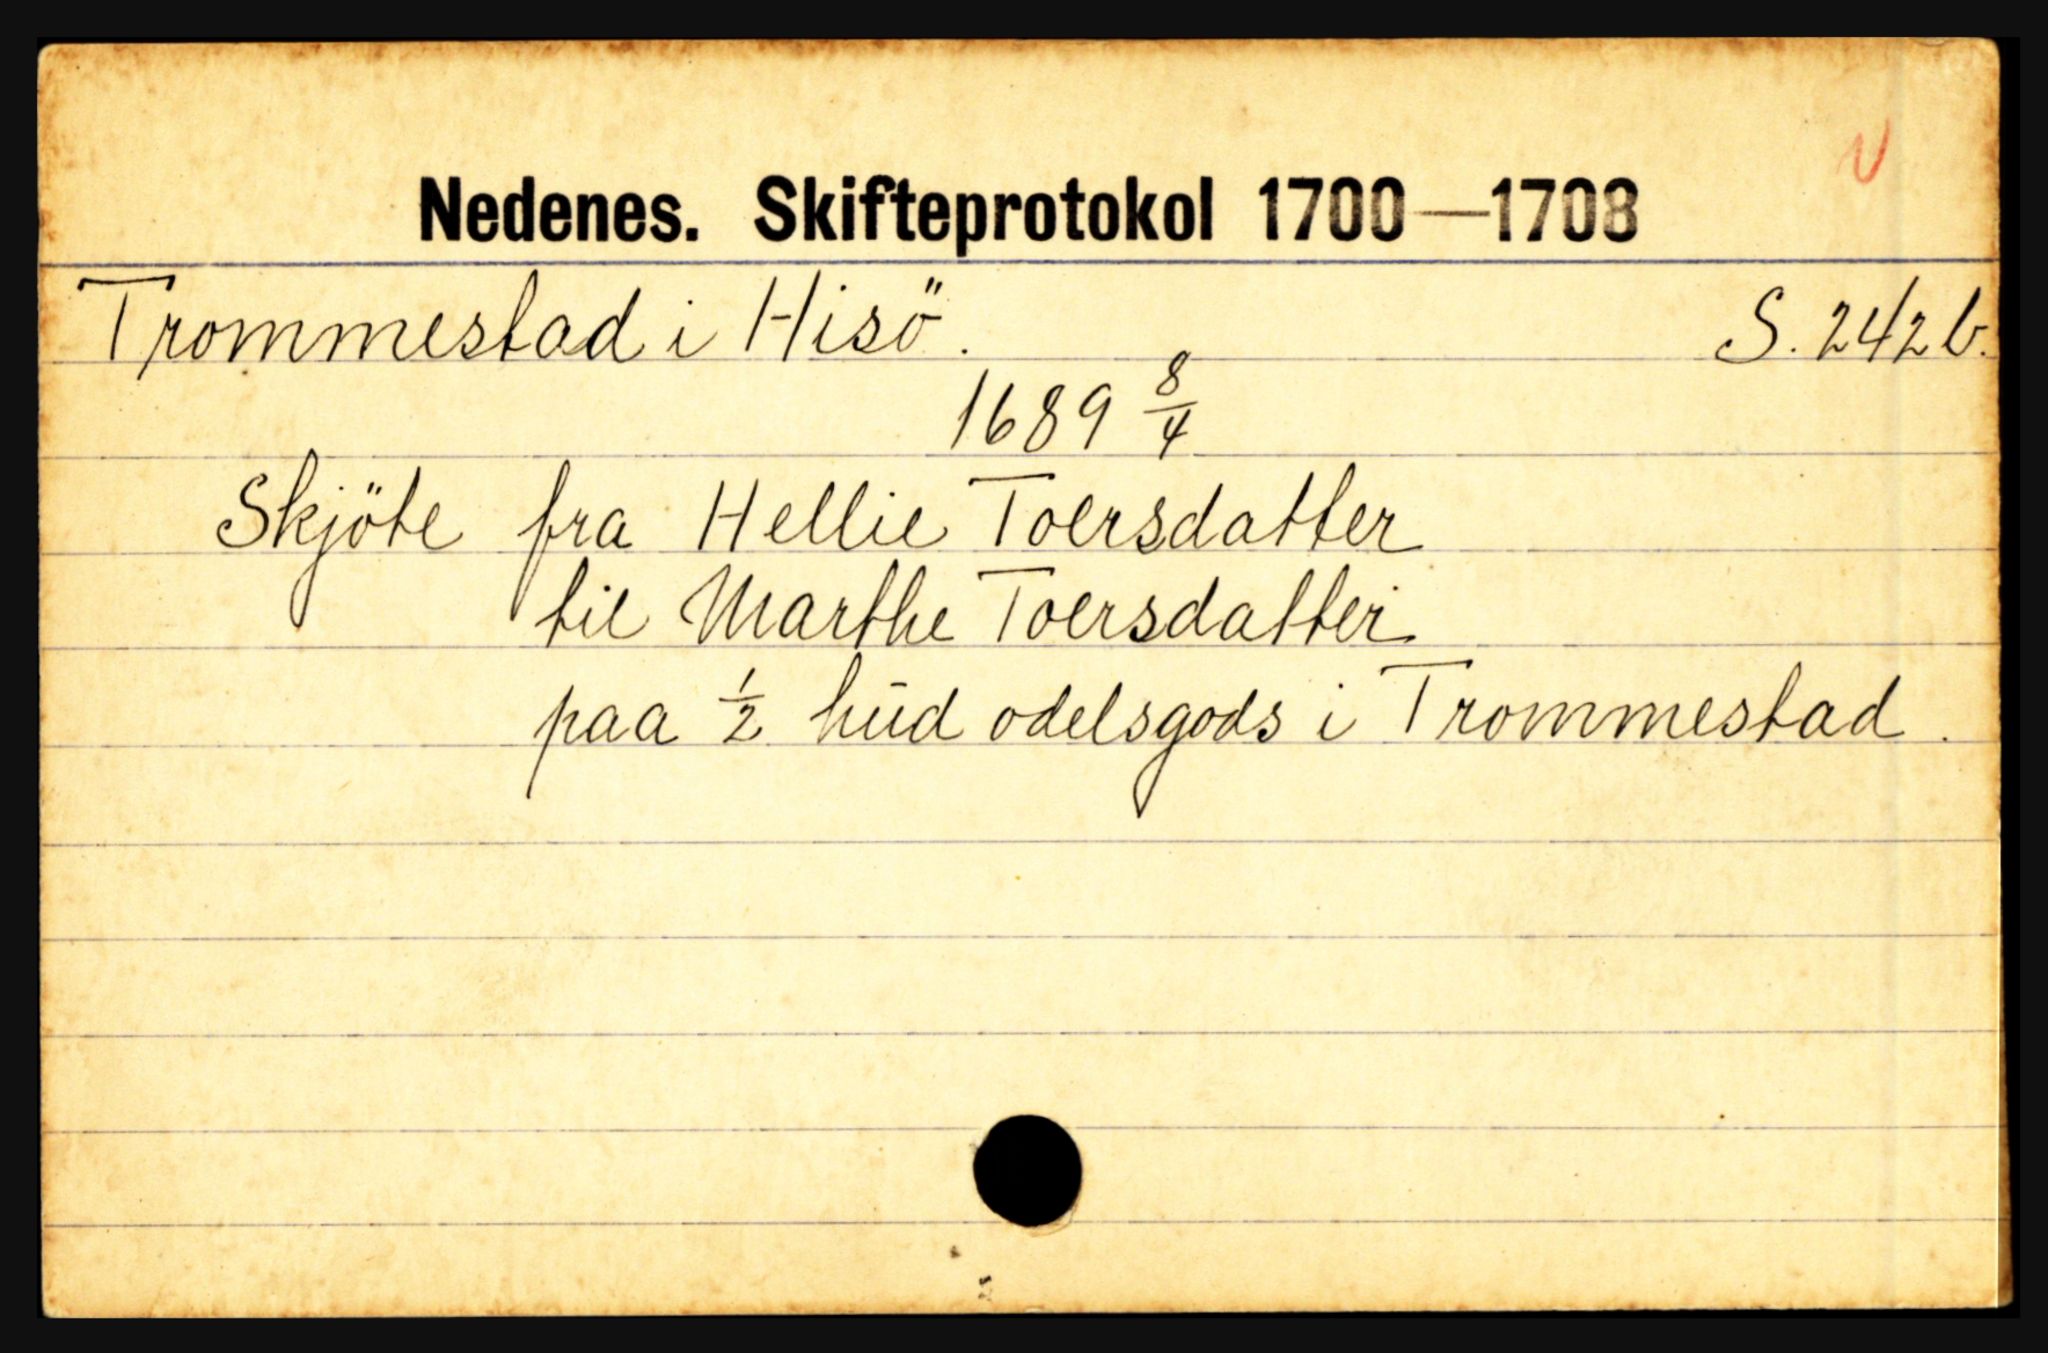 Nedenes. Skifteprotokol 1700—1708
Trommestad i Hisö. S. 242 b.
1689 8/4
Skjöte fra Hellie Toersdatter
til Marthe Toersdatter
paa 1/2 hud odelsgods i Trommestad.